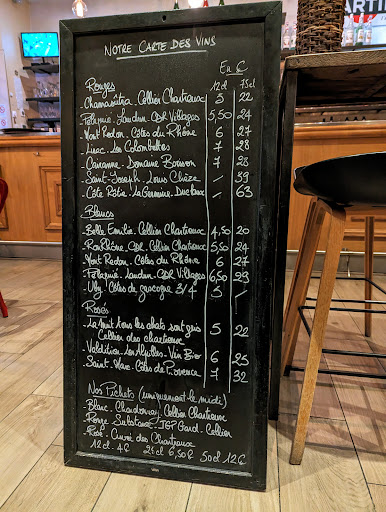 MARTINI
Notre Carte des Vins
En €
Rouges 12cl 75cl
. Chamasûtra. Cellier Chartreux 5 22
. Laudun. CDR Villages 5,50 24
. Mont Redon. Côtes du Rhône 6 27
. Lirac. Les Colombettes 7 28
. Cairanne. Domaine 7 28
. Saint-Joseph. Louis Chèze / 39
. Côte Rôtie. La Germine. Duclaux / 63
Blancs
. Belle Emilie. Cellier Chartreux 4,50 20
. RouRhône. CDR. Cellier Chartreux 5,50 24
. Mont Redon. Côtes du Rhône 6 27
. Laudun. CDR Villages 6,50 29
. Uby. Côtes de gascogne 3/4 5 /
Rosés
. La Nuit tous les chats sont gris 5 22
Cellier des chartreux
. Valdition. Les Alpilles. Vin Bio 6 25
. Saint. Max. Côtes de Provence 7 32
Nos Pichets (uniquement le midi)
. Blanc. Chardonnay. Cellier Chartreux
. Rouge Substance. IGP Gard. Cellier
. Rosé. Cuvée des Chartreux
12cl. 4€ 25cl 6,50€ 50cl 12€